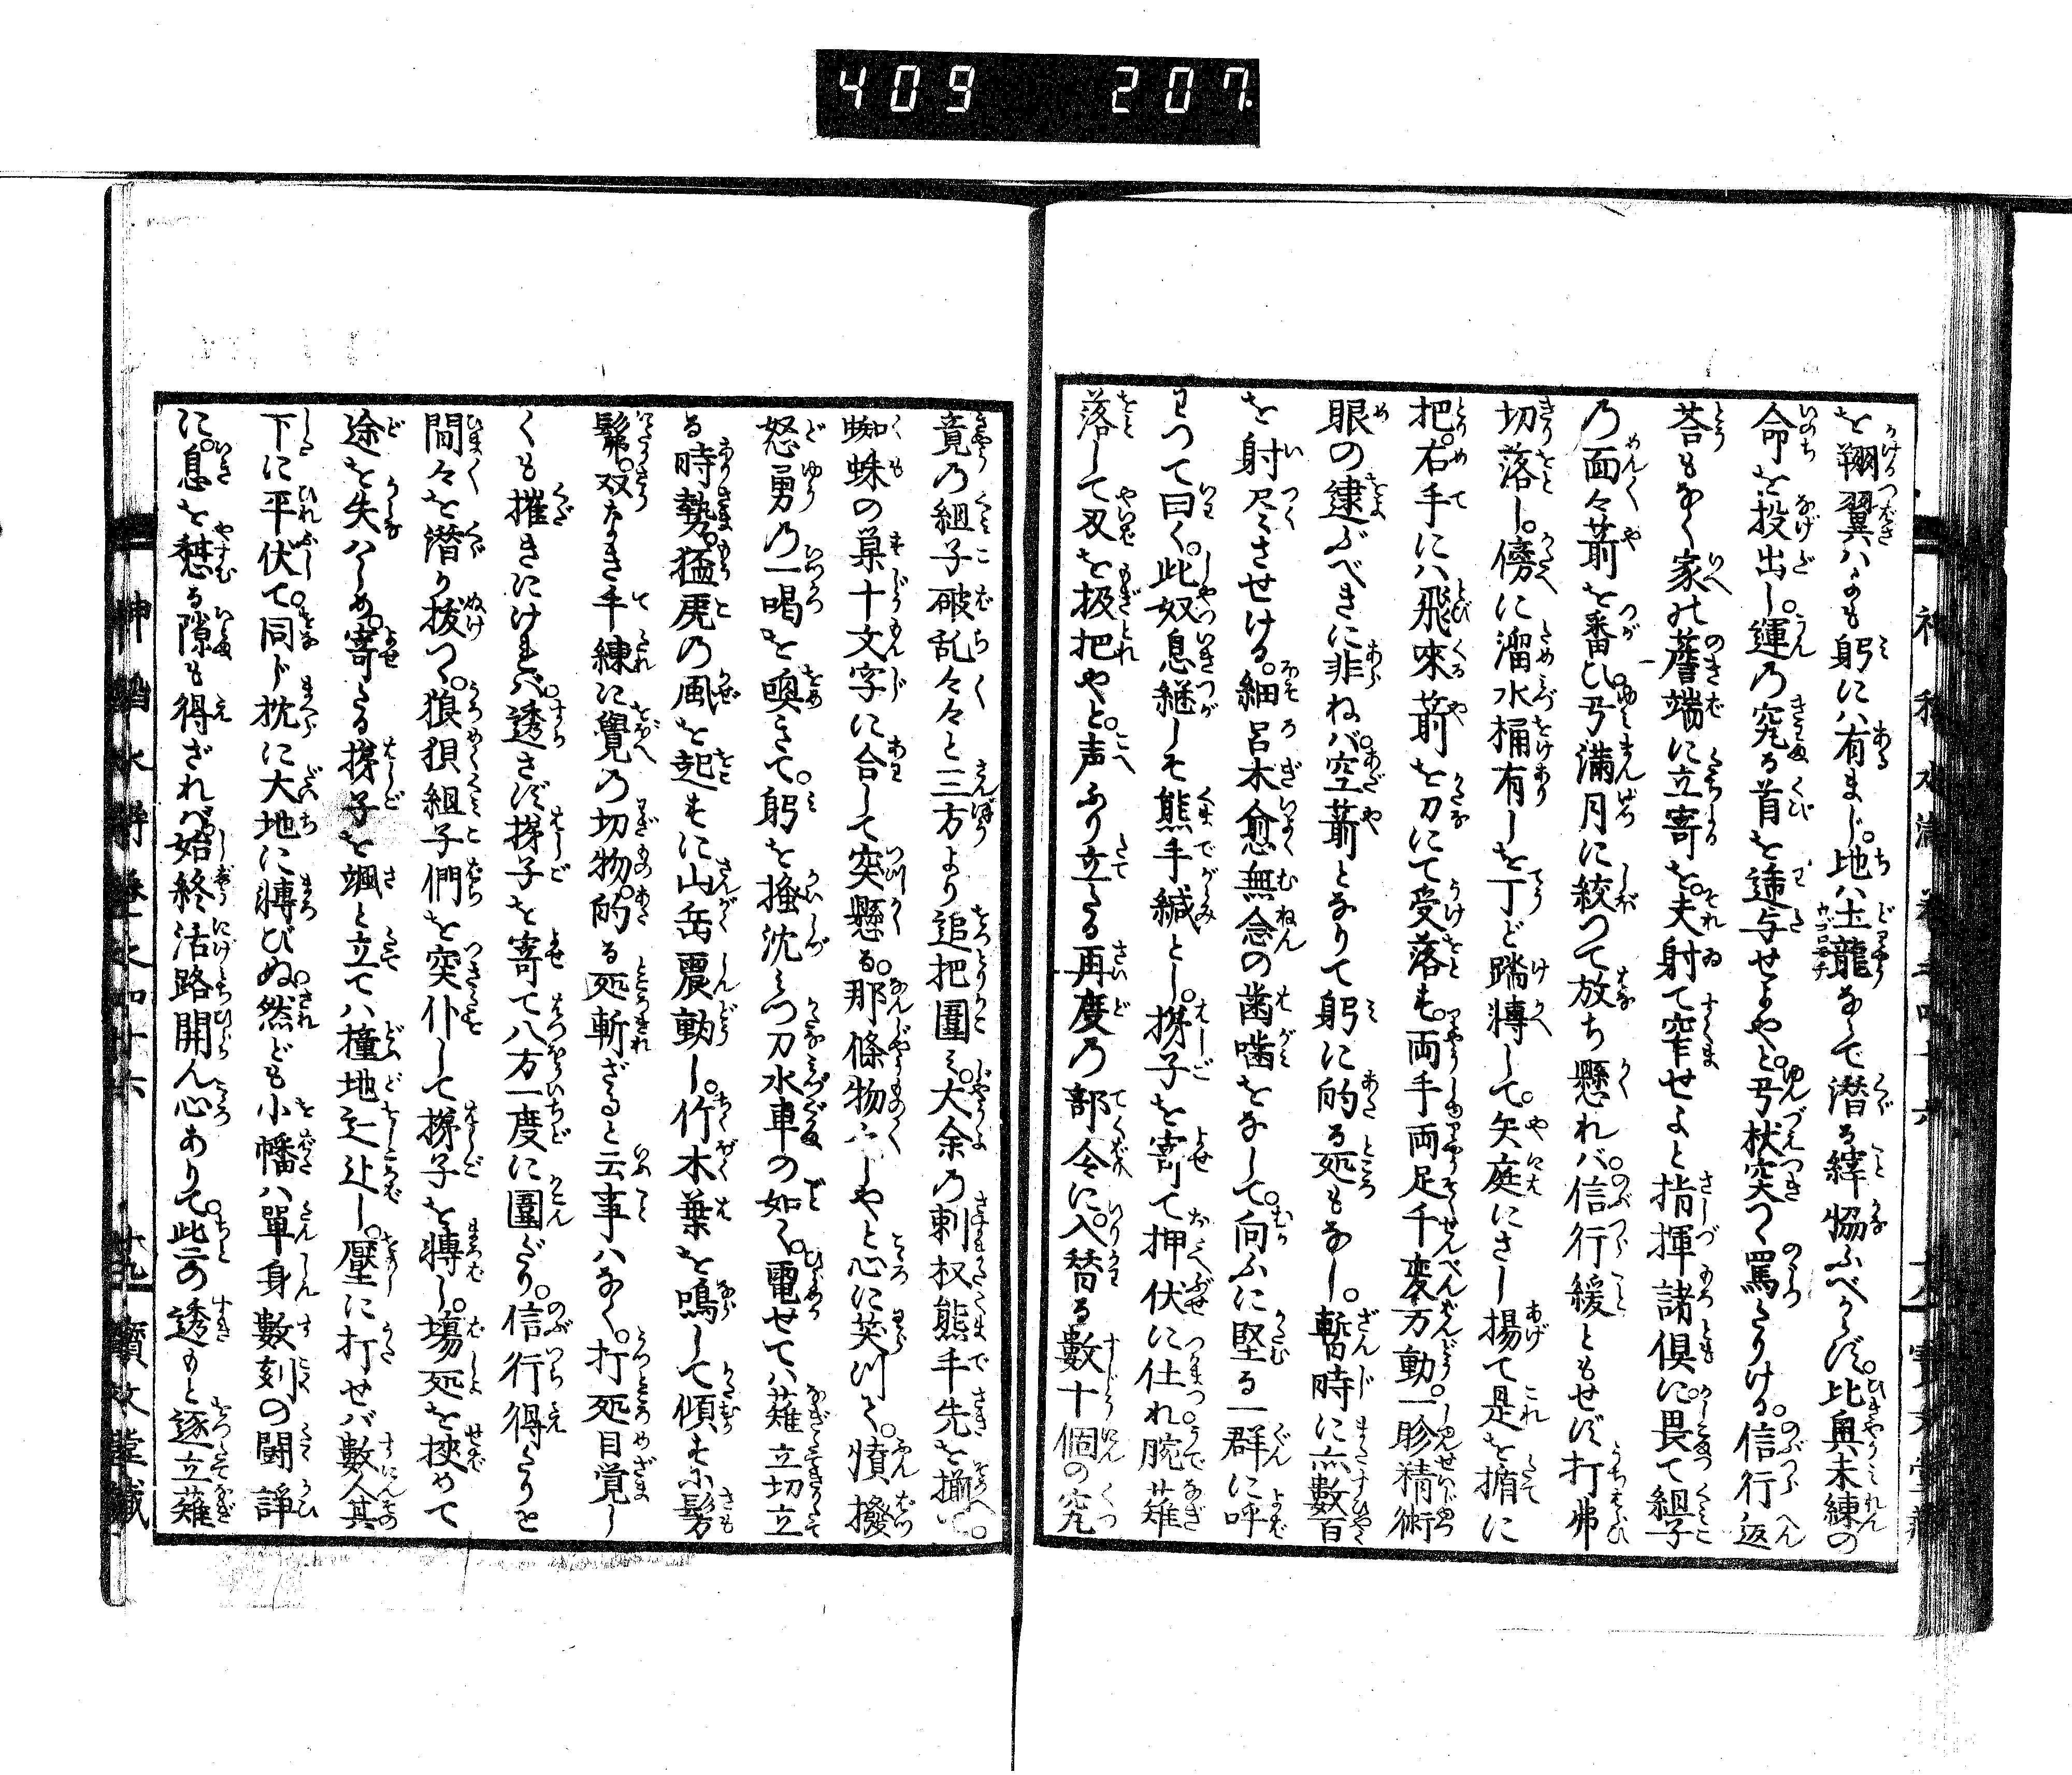 409 207
を翔翼ハよも躬に有まじ。地ハ土龍ならで潜る縡協ふべからず。比興未練の
命を投出し。運の究る首を逓与せよや。と。弓杖突て罵りける。信行返
荅もなく家の簷端に立寄を。夫射て窄せよと指揮諸倶に。畏て組子
の面々箭を番ひ。弓満月に絞つて放ち懸れバ。信行緩ともせず打拂
切落し。傍に溜水桶有しを丁ど踏轉して。矢庭にさし揚て是を楯に
把。右手にハ飛來箭を刀にて受落す。両手両足千変万動。一眕精術
眼の逮ぶべきに非ねバ。空箭となりて躬に的る処もなし。暫時に亦數百
を射尽くさせける。細呂木愈無念の歯噛をなして。向ふに堅る一群に呼
わつて曰く。此奴息継しそ熊手緘とし。梯子を寄て押伏に仕れ。腕薙
落して刄を扱把やと。声ふり立たる再度の部令に。入替る數十個の究
竟の組子破乱々々と三方より追把圍み。大余の刺杈熊手先を揃へ。
蜘蛛の巣十文字に合して突懸る。那條物々しやと心に英いて。憤撥
怒勇の一喝を喚きて。躬を搔沈みつ刀水車の如く。電せてハ薙立切立
る時勢。猛虎の風を起すに山岳震動し。竹木葉を鳴して傾すに髣
髴。双なき手練に覺の切物。的る処斬ざると云事ハなく。打処目覚し
くも摧きにけれバ。透さず梯子を寄て八方一度に圍だり。信行得たりと
間々を潜り抜つ。狼狽組子們を突仆して梯子を轉し。場処を挾めて
途を失ハしめ。寄たる梯子を颯と立てハ撞地と辷し。壓に打せバ數人其
下に平伏て。同じ枕に大地に轉びぬ。然ども小幡ハ單身數刻の闘諍
に。息を憩る隙も得ざれバ。始終活路開ん心ありて。此一の透もと逐立薙
十九 寶文堂藏